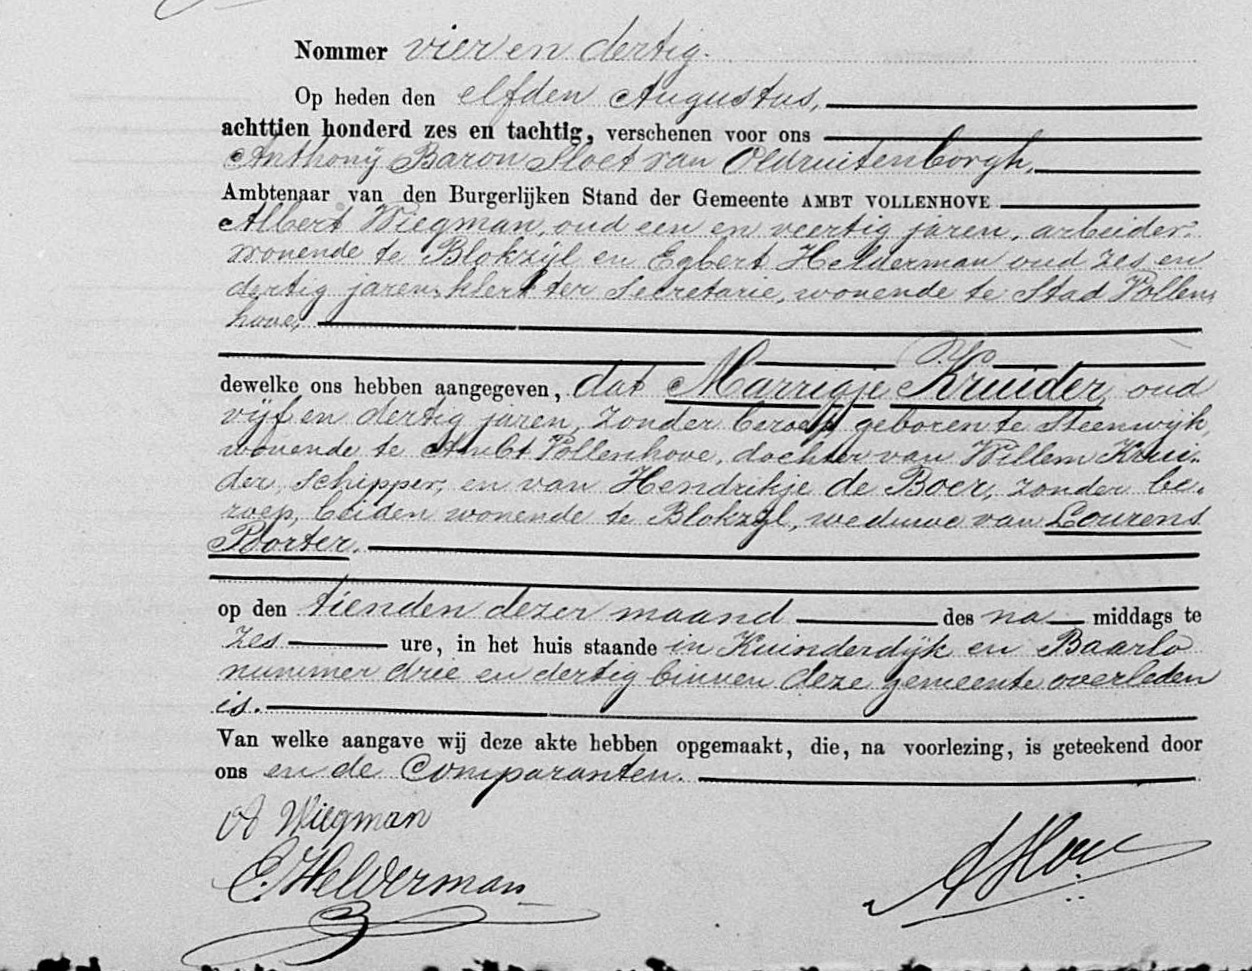 Nommer vier en dertig.
Op heden den elfden Augustus,
achttien honderd zes en tachtig, verschenen voor ons
Anthonij Baron Sloet van Oldruitenborgh,
Ambtenaar van den Burgerlijken Stand der Gemeente AMBT VOLLENHOVE
Albert Wiegman, oud een en veertig jaren, arbeider,
wonende te Blokzijl en Egbert Helderman oud zes en
dertig jaren, klerk ter Secretarie, wonende te Stad Vollen
hove,
dewelke ons hebben aangegeven, dat Marrigje Kruider, oud
vijf en dertig jaren, zonder beroep, geboren te Steenwijk,
wonende te Ambt Vollenhove, dochter van Willem Krui-
der, schipper, en van Hendrikje de Boer, zonder be-
roep, beiden wonende te Blokzijl, weduwe van Lourens
Poorter.
op den tienden dezer maand des na middags te
zes ure, in het huis staande in Kuinderdijk en Baarlo
nummer drie en dertig binnen deze gemeente overleden
is.
Van welke aangave wij deze akte hebben opgemaakt, die, na voorlezing, is geteekend door
ons en de Comparanten.
A Wiegman
E. Helderman